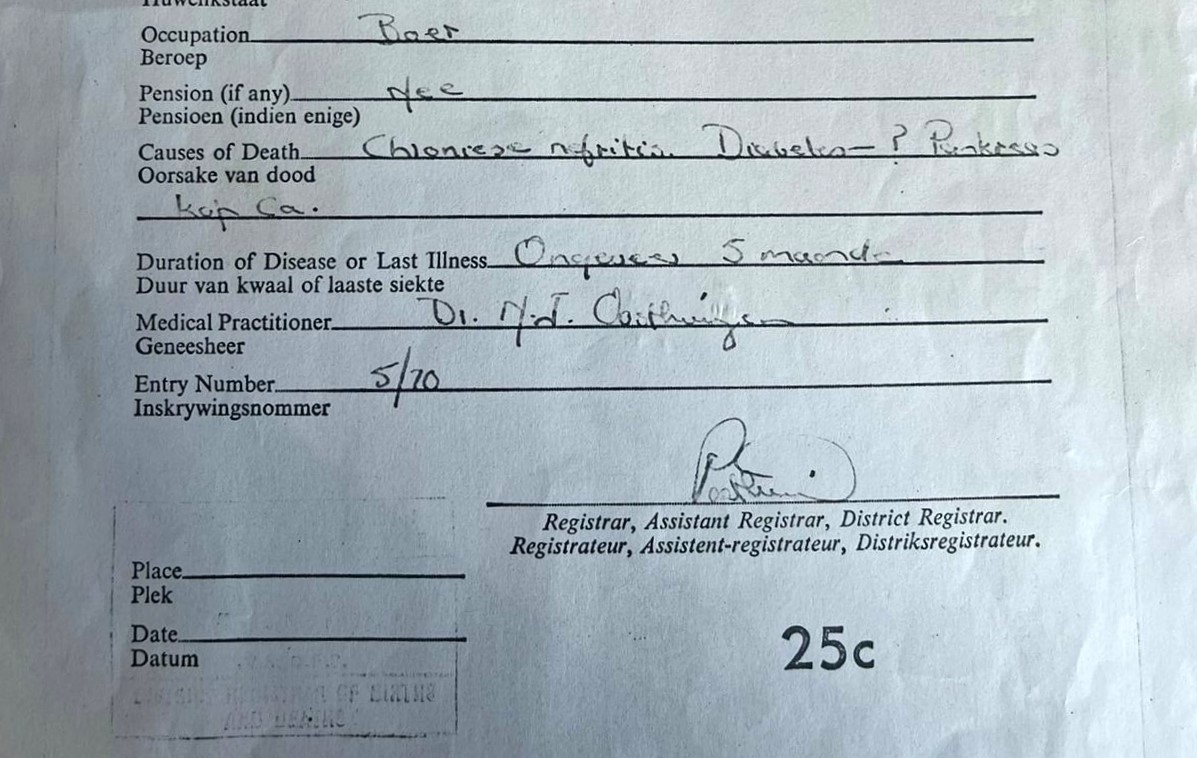 Huwelikstaat
Occupation Boer
Beroep
Pension (if any) Nee
Pensioen (indien enige)
Causes of Death Chroniese nefritis. Diabetes – ? Pankreas
Oorsake van dood
kop Ca.
Duration of Disease or Last Illness Ongeveer 5 maande
Duur van kwaal of laaste siekte
Medical Practitioner Dr. N.J. Oosthuizen
Geneesheer
Entry Number 5/70
Inskrywingsnommer
Registrar, Assistant Registrar, District Registrar.
Registrateur, Assistent-registrateur, Distriksregistrateur.
Place
Plek
Date
Datum
25c
REGISTRAR OF BIRTHS
AND DEATHS